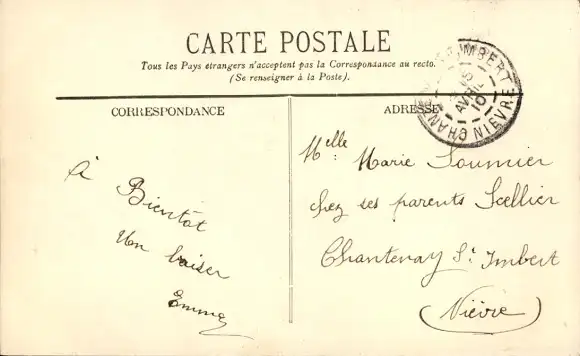 CARTE POSTALE
Tous les Pays étrangers n'acceptent pas la Correspondance au recto.
(Se renseigner à la Poste).
CORRESPONDANCE
ADRESSE
À Bientôt
Un baiser
Emma
Melle Marie Soumier
chez ses parents Scellier
Chantenay St Imbert
(Nièvre)
CHANTENAY ST IMBERT
AVRIL
10
NIÈVRE